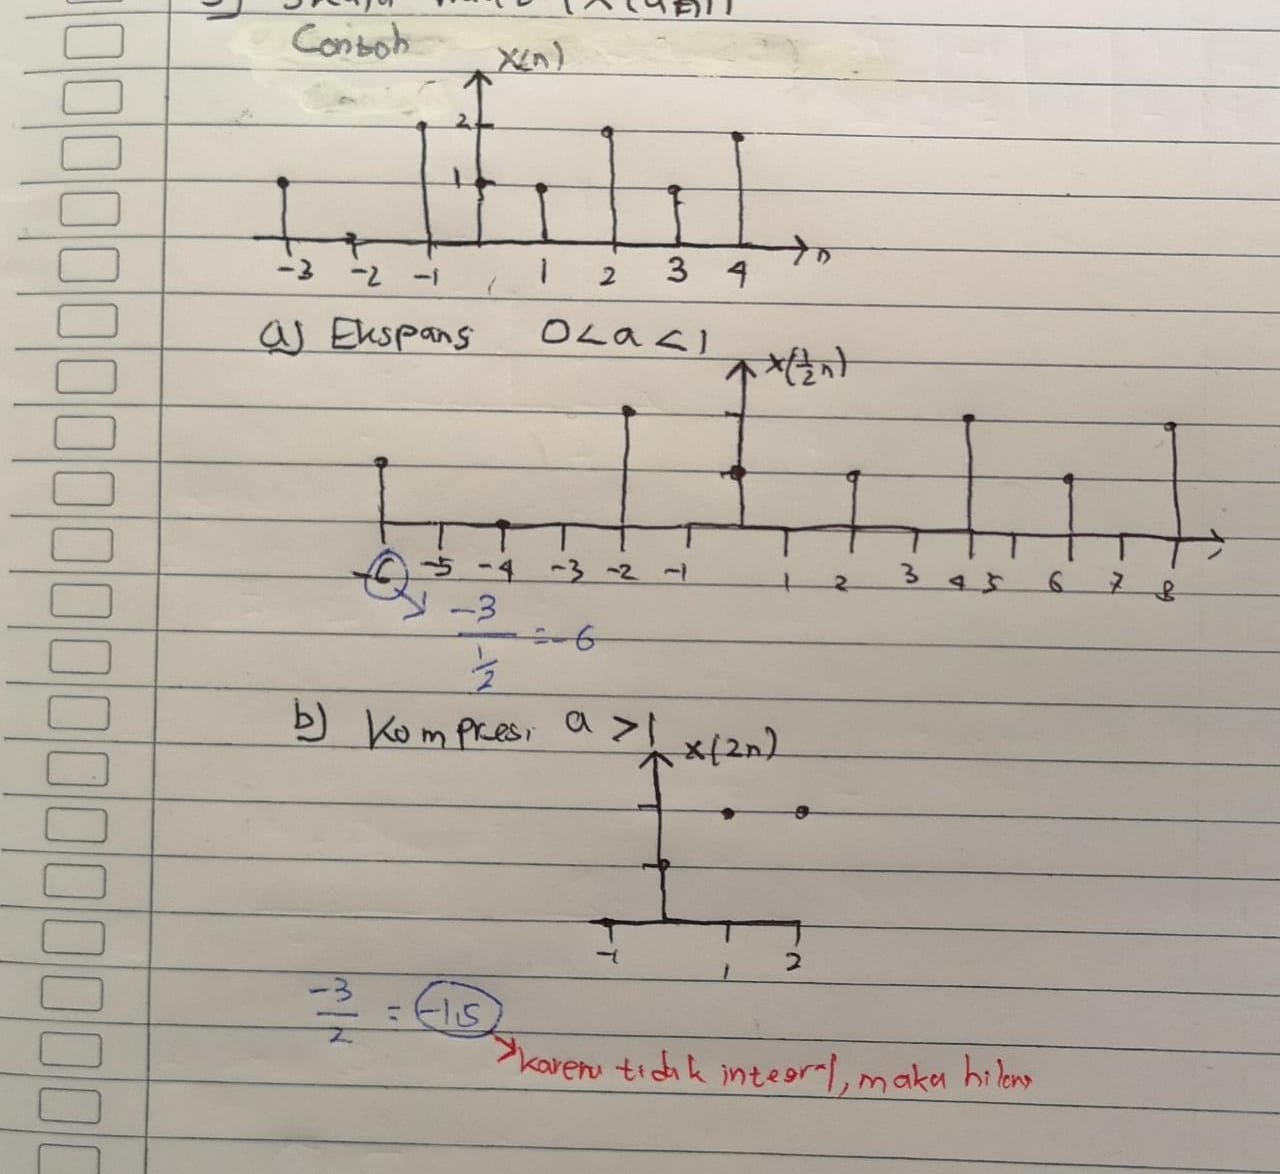 Contoh
x(n)
2
1
-3 -2 -1 1 2 3 4 n
a) Ekspans 0<a<1
x(1/2 n)
-6 -5 -4 -3 -2 -1 1 2 3 4 5 6 7 8
-3/(1/2) = -6
b) Kompresi a >1
x(2n)
-1 1 2
-3/2 = -1,5
karena tidak integral, maka hilang